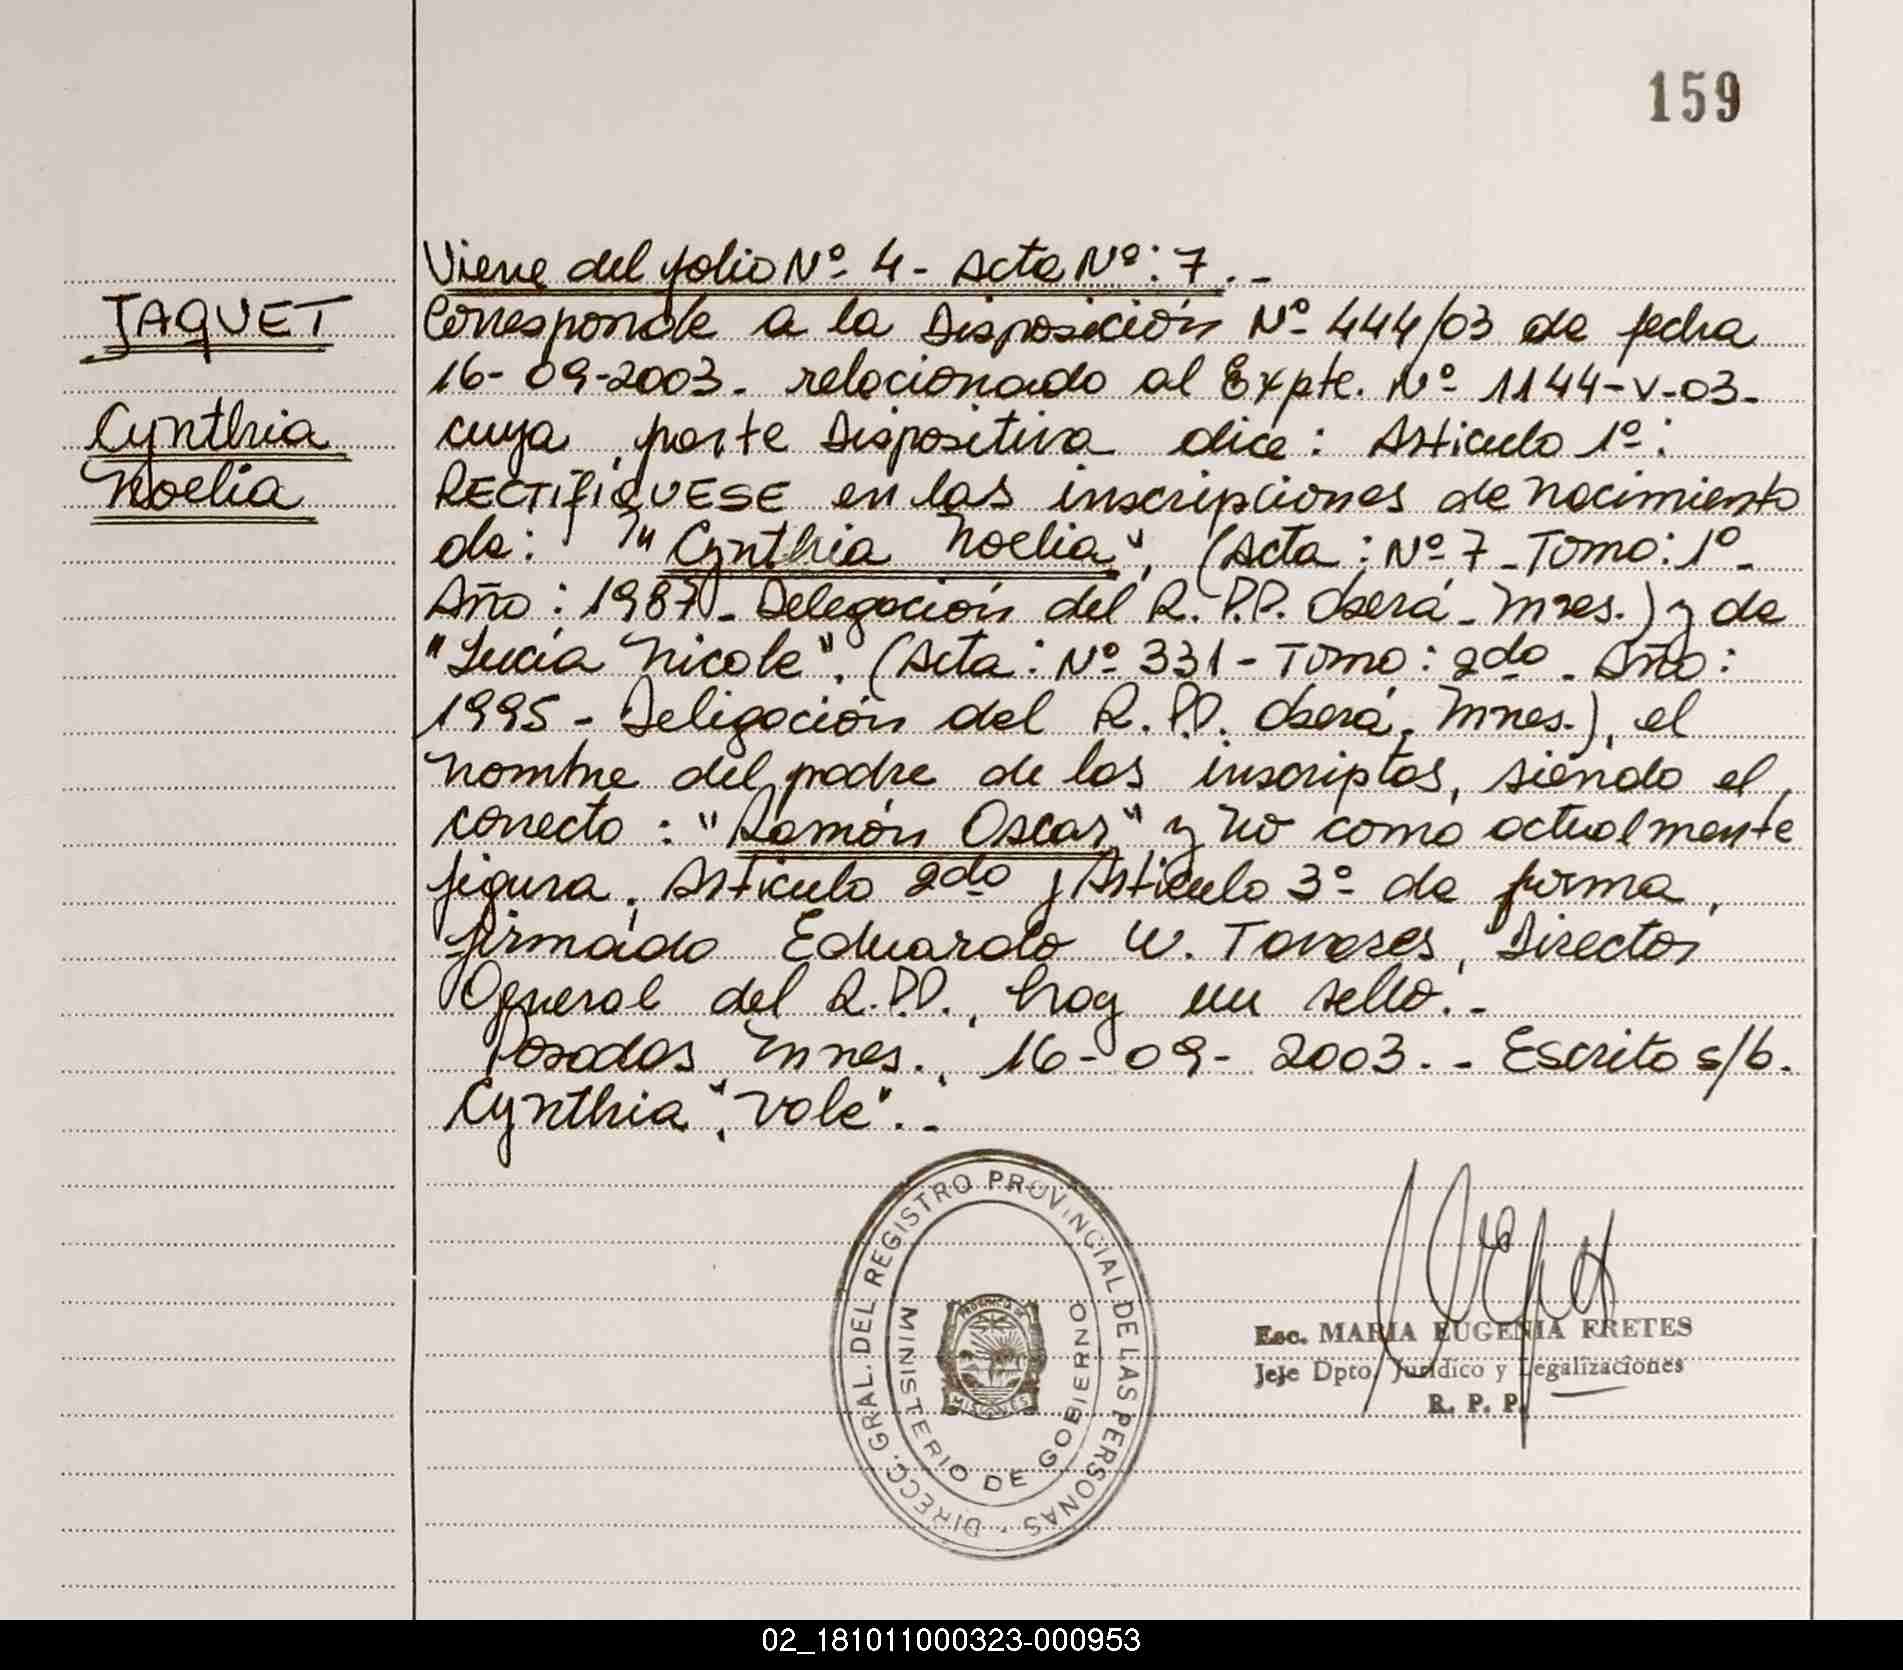 159
Viene del folio Nº 4 - Acta Nº: 7. -
JAQUET
Corresponde a la Disposición Nº 444/03 de fecha
16-09-2003. relacionado al Expte. Nº 1144-V-03-
Cynthia
cuya parte Dispositiva dice: Artículo 1º:
Noelia
RECTIFIQUESE en las inscripciones de nacimiento
de: "Cynthia Noelia", (Acta: Nº 7 - Tomo: 1º -
Año: 1987 - Delegación del R.P.P. Oberá - Mnes.) y de
"Lucía Nicole". (Acta: Nº 331 - Tomo: 2do - Año:
1995 - Delegación del R.P.P. Oberá, Mnes.), el
nombre del padre de los inscriptos, siendo el
correcto: "Ramón Oscar" y no como actualmente
figura. Artículo 2do y Artículo 3º de forma,
firmado Eduardo W. Tavares, Director
General del R.P.P., hay un sello. -
Posadas, Mnes., 16-09-2003. - Escrito s/b.
Cynthia", "vale". -
DIRECC. GRAL. DEL REGISTRO PROVINCIAL DE LAS PERSONAS
MINISTERIO DE GOBIERNO
PROVINCIA DE
MISIONES
Esc. MARIA EUGENIA FRETES
Jefe Dpto. Jurídico y Legalizaciones
R. P. P.
02_181011000323-000953